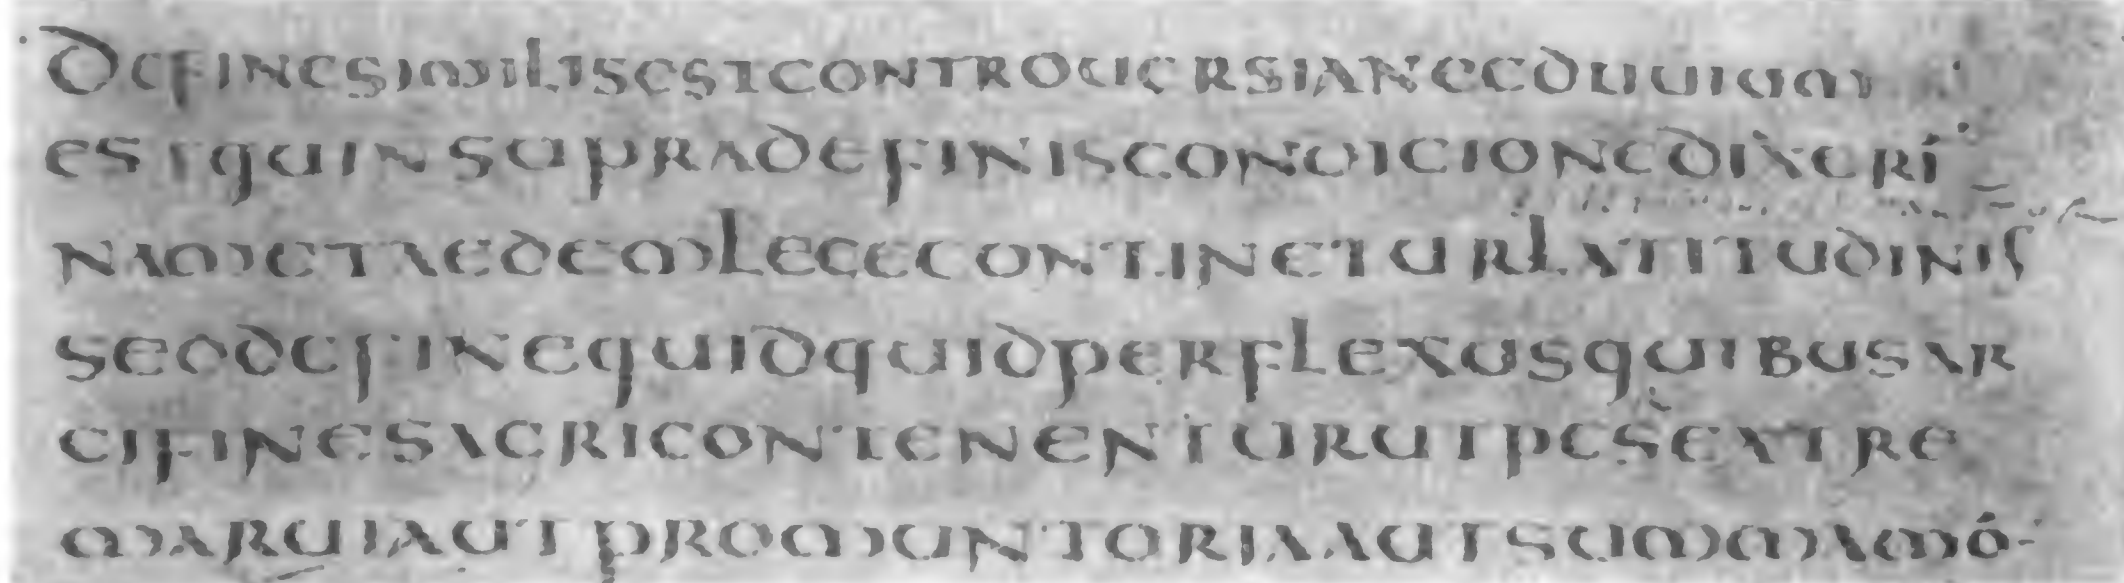 DEFINESIMILISESTCONTROUERSIANECDUUIUM
ESTQUINSUPRADEFINISCONDICIONEDIXERĪ
NAMETAEEDEMLEGECONTINETURLATITUDINIS
SEDDEFINEQUIDQUIDPERFLEXUSQUIBUSAR
CIFINESAGRICONTENENTURUTPESEXTRE
MARUIAUTPROMUNTORIAAUTSUMMAMO